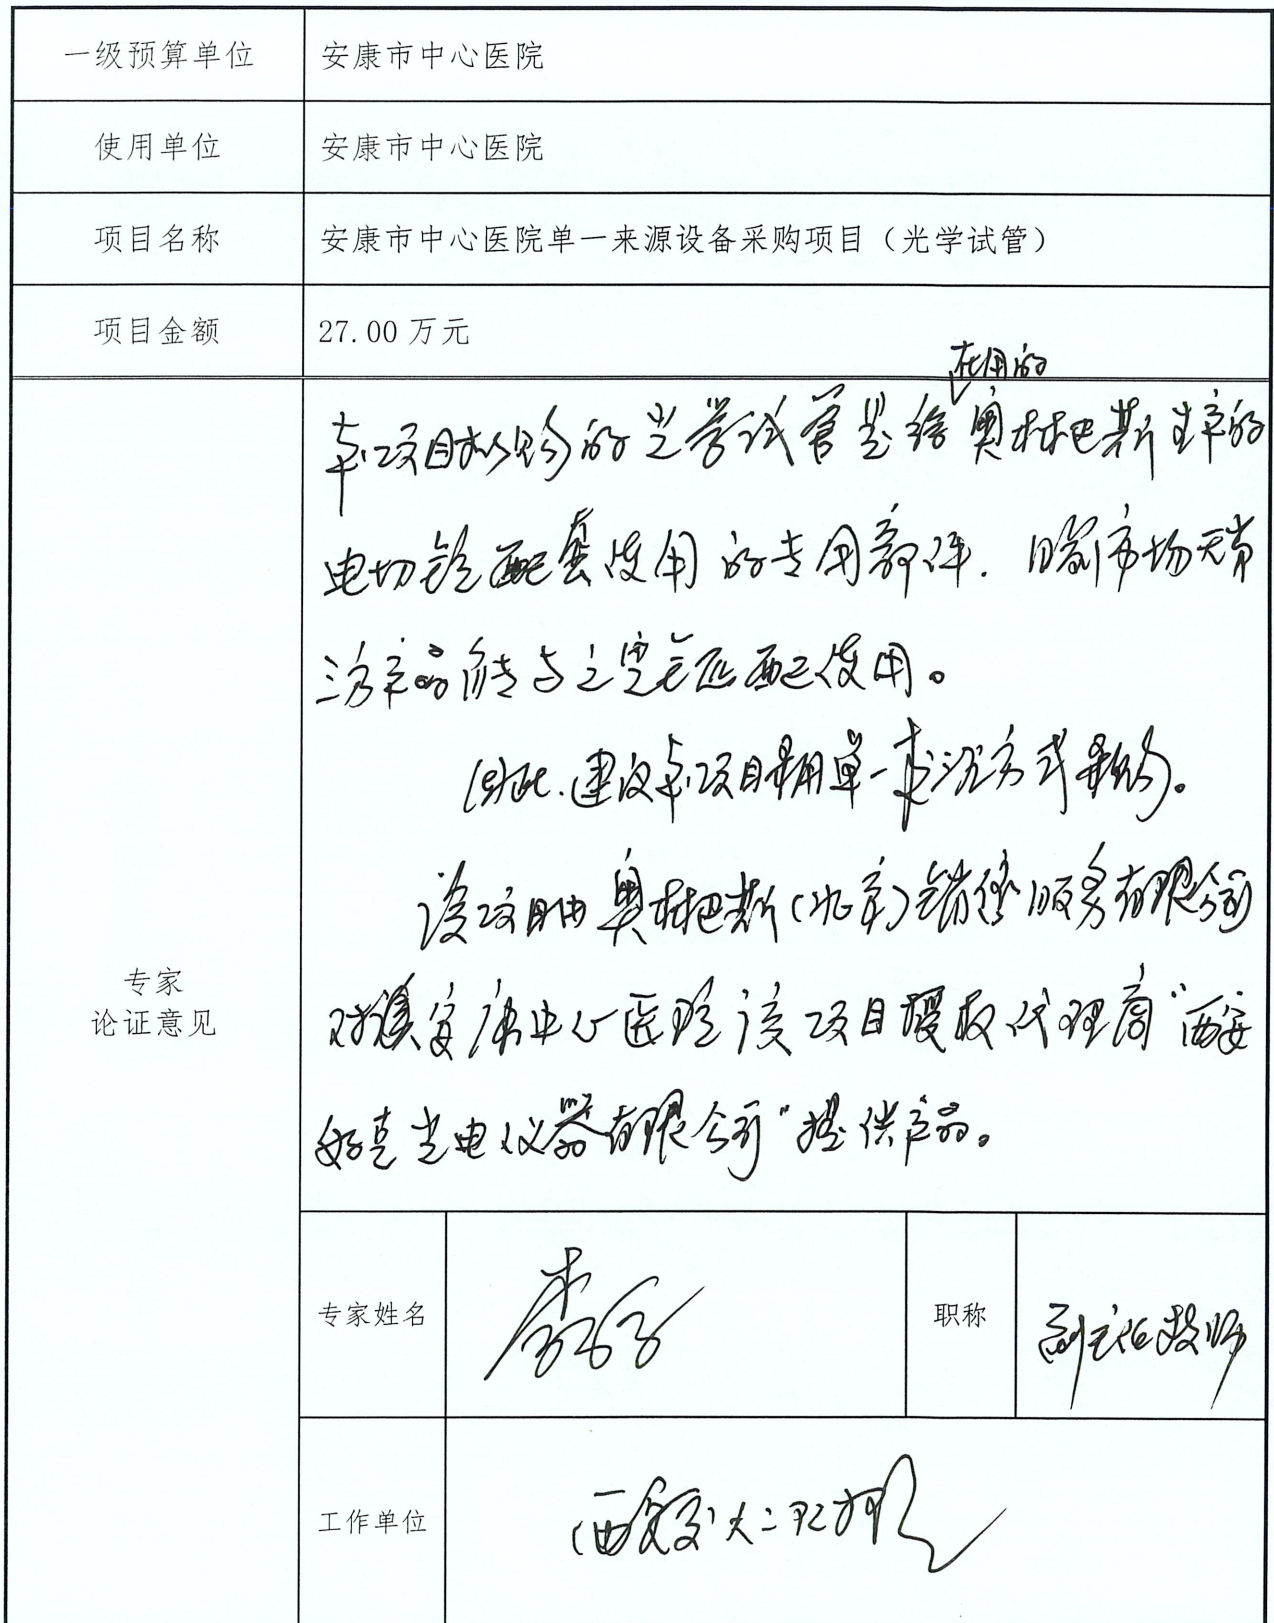 一级预算单位 安康市中心医院
使用单位 安康市中心医院
项目名称 安康市中心医院单一来源设备采购项目（光学试管）
项目金额 27.00万元
在用的
本项目拟购的光学试管是给奥林巴斯生产的
电切镜配套使用的专用部件. 目前市场无第
三方产品能与之完全匹配使用。
因此.建议本项目采用单一来源方式采购。
该项目由奥林巴斯(北京)销售服务有限公司
对安康中心医院该项目授权代理商"西安
光电仪器有限公司"提供产品。
专家
论证意见
专家姓名 职称 副主任技师
工作单位